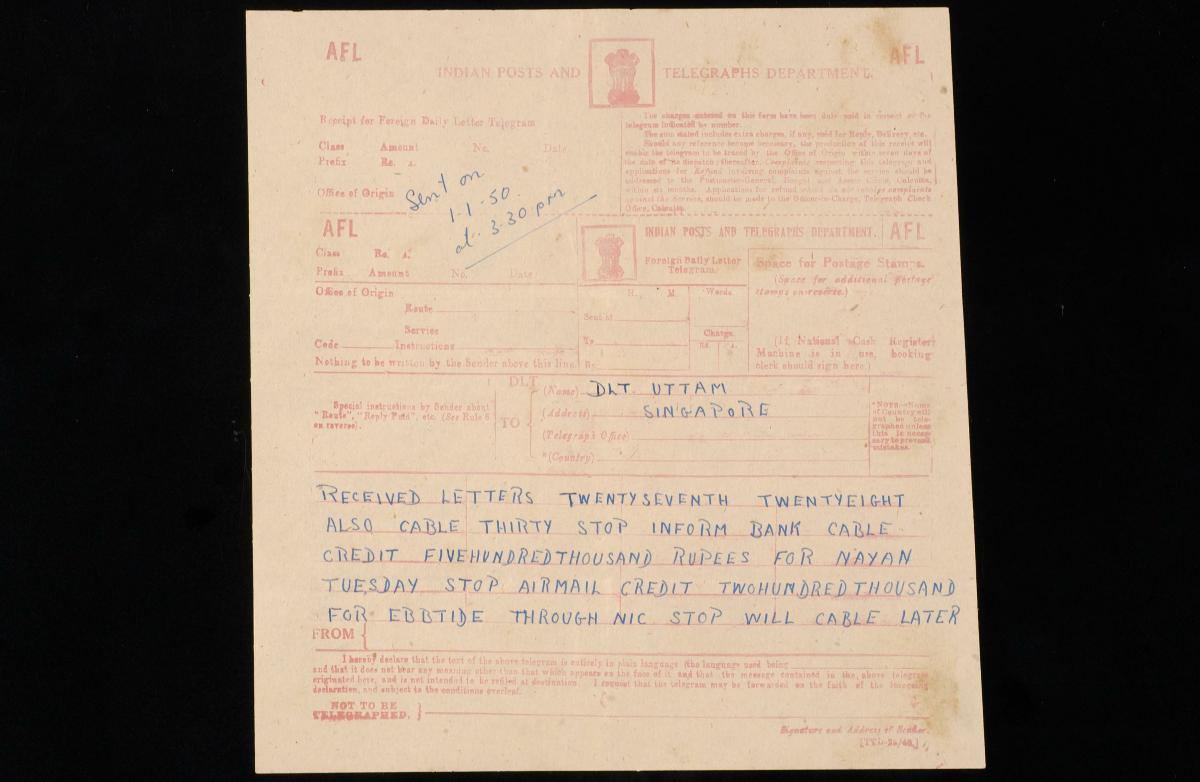 AFL
AFL
INDIAN POSTS AND TELEGRAPHS DEPARTMENT.
Receipt for Foreign Daily Letter Telegram
Class Amount No. Date
Prefix Rs. A.
Office of Origin
The charges entered on this form have been duly paid in respect of the
telegram indicated by number.
The sum stated includes extra charges, if any, paid for Reply, Delivery, etc.
Should any reference become necessary, the production of this receipt will
enable the telegram to be traced by the Office of Origin within seven days of
the date of its dispatch; thereafter. Complaints respecting this telegram and
applications for Refund involving complaints against the service should be
addressed to the Postmaster-General, Bengal and Assam Circle, Calcutta,
within six months. Applications for refund which do not involve complaints
against the Service, should be made to the Officer-in-Charge, Telegraph Check
Office, Calcutta.
Sent on
1-1-50.
at 3-30 pm
AFL
INDIAN POSTS AND TELEGRAPHS DEPARTMENT.
AFL
Class Rs. A.
Prefix Amount No. Date
Foreign Daily Letter
Telegram.
Space for Postage Stamps.
(Space for additional postage
stamps on reverse.)
Office of Origin
Route
Service
Code Instructions
Nothing to be written by the Sender above this line.
H. M.
Sent at
To
By
Words.
Charge.
Rs. A.
(If National Cash Register
Machine is in use, booking
clerk should sign here.)
DLT
Special instructions by Sender about
"Route", "Reply Paid", etc. (See Rule 6
on reverse).
TO
(Name) DLT. UTTAM
(Address) SINGAPORE
(Telegraph Office)
*(Country)
*NOTE.—Name
of Country will
not be tele-
graphed unless
this is neces-
sary to prevent
mistakes.
RECEIVED LETTERS TWENTYSEVENTH TWENTYEIGHT
ALSO CABLE THIRTY STOP INFORM BANK CABLE
CREDIT FIVEHUNDREDTHOUSAND RUPEES FOR NAYAN
TUESDAY STOP AIRMAIL CREDIT TWOHUNDREDTHOUSAND
FOR EBBTIDE THROUGH NIC STOP WILL CABLE LATER
FROM
I hereby declare that the text of the above telegram is entirely in plain language (the language used being
and that it does not bear any meaning other than that which appears on the face of it and that the message contained in the above telegram
originated here, and is not intended to be refiled at destination. I request that the telegram may be forwarded on the faith of the foregoing
declaration, and subject to the conditions overleaf.
NOT TO BE
TELEGRAPHED.
Signature and Address of Sender.